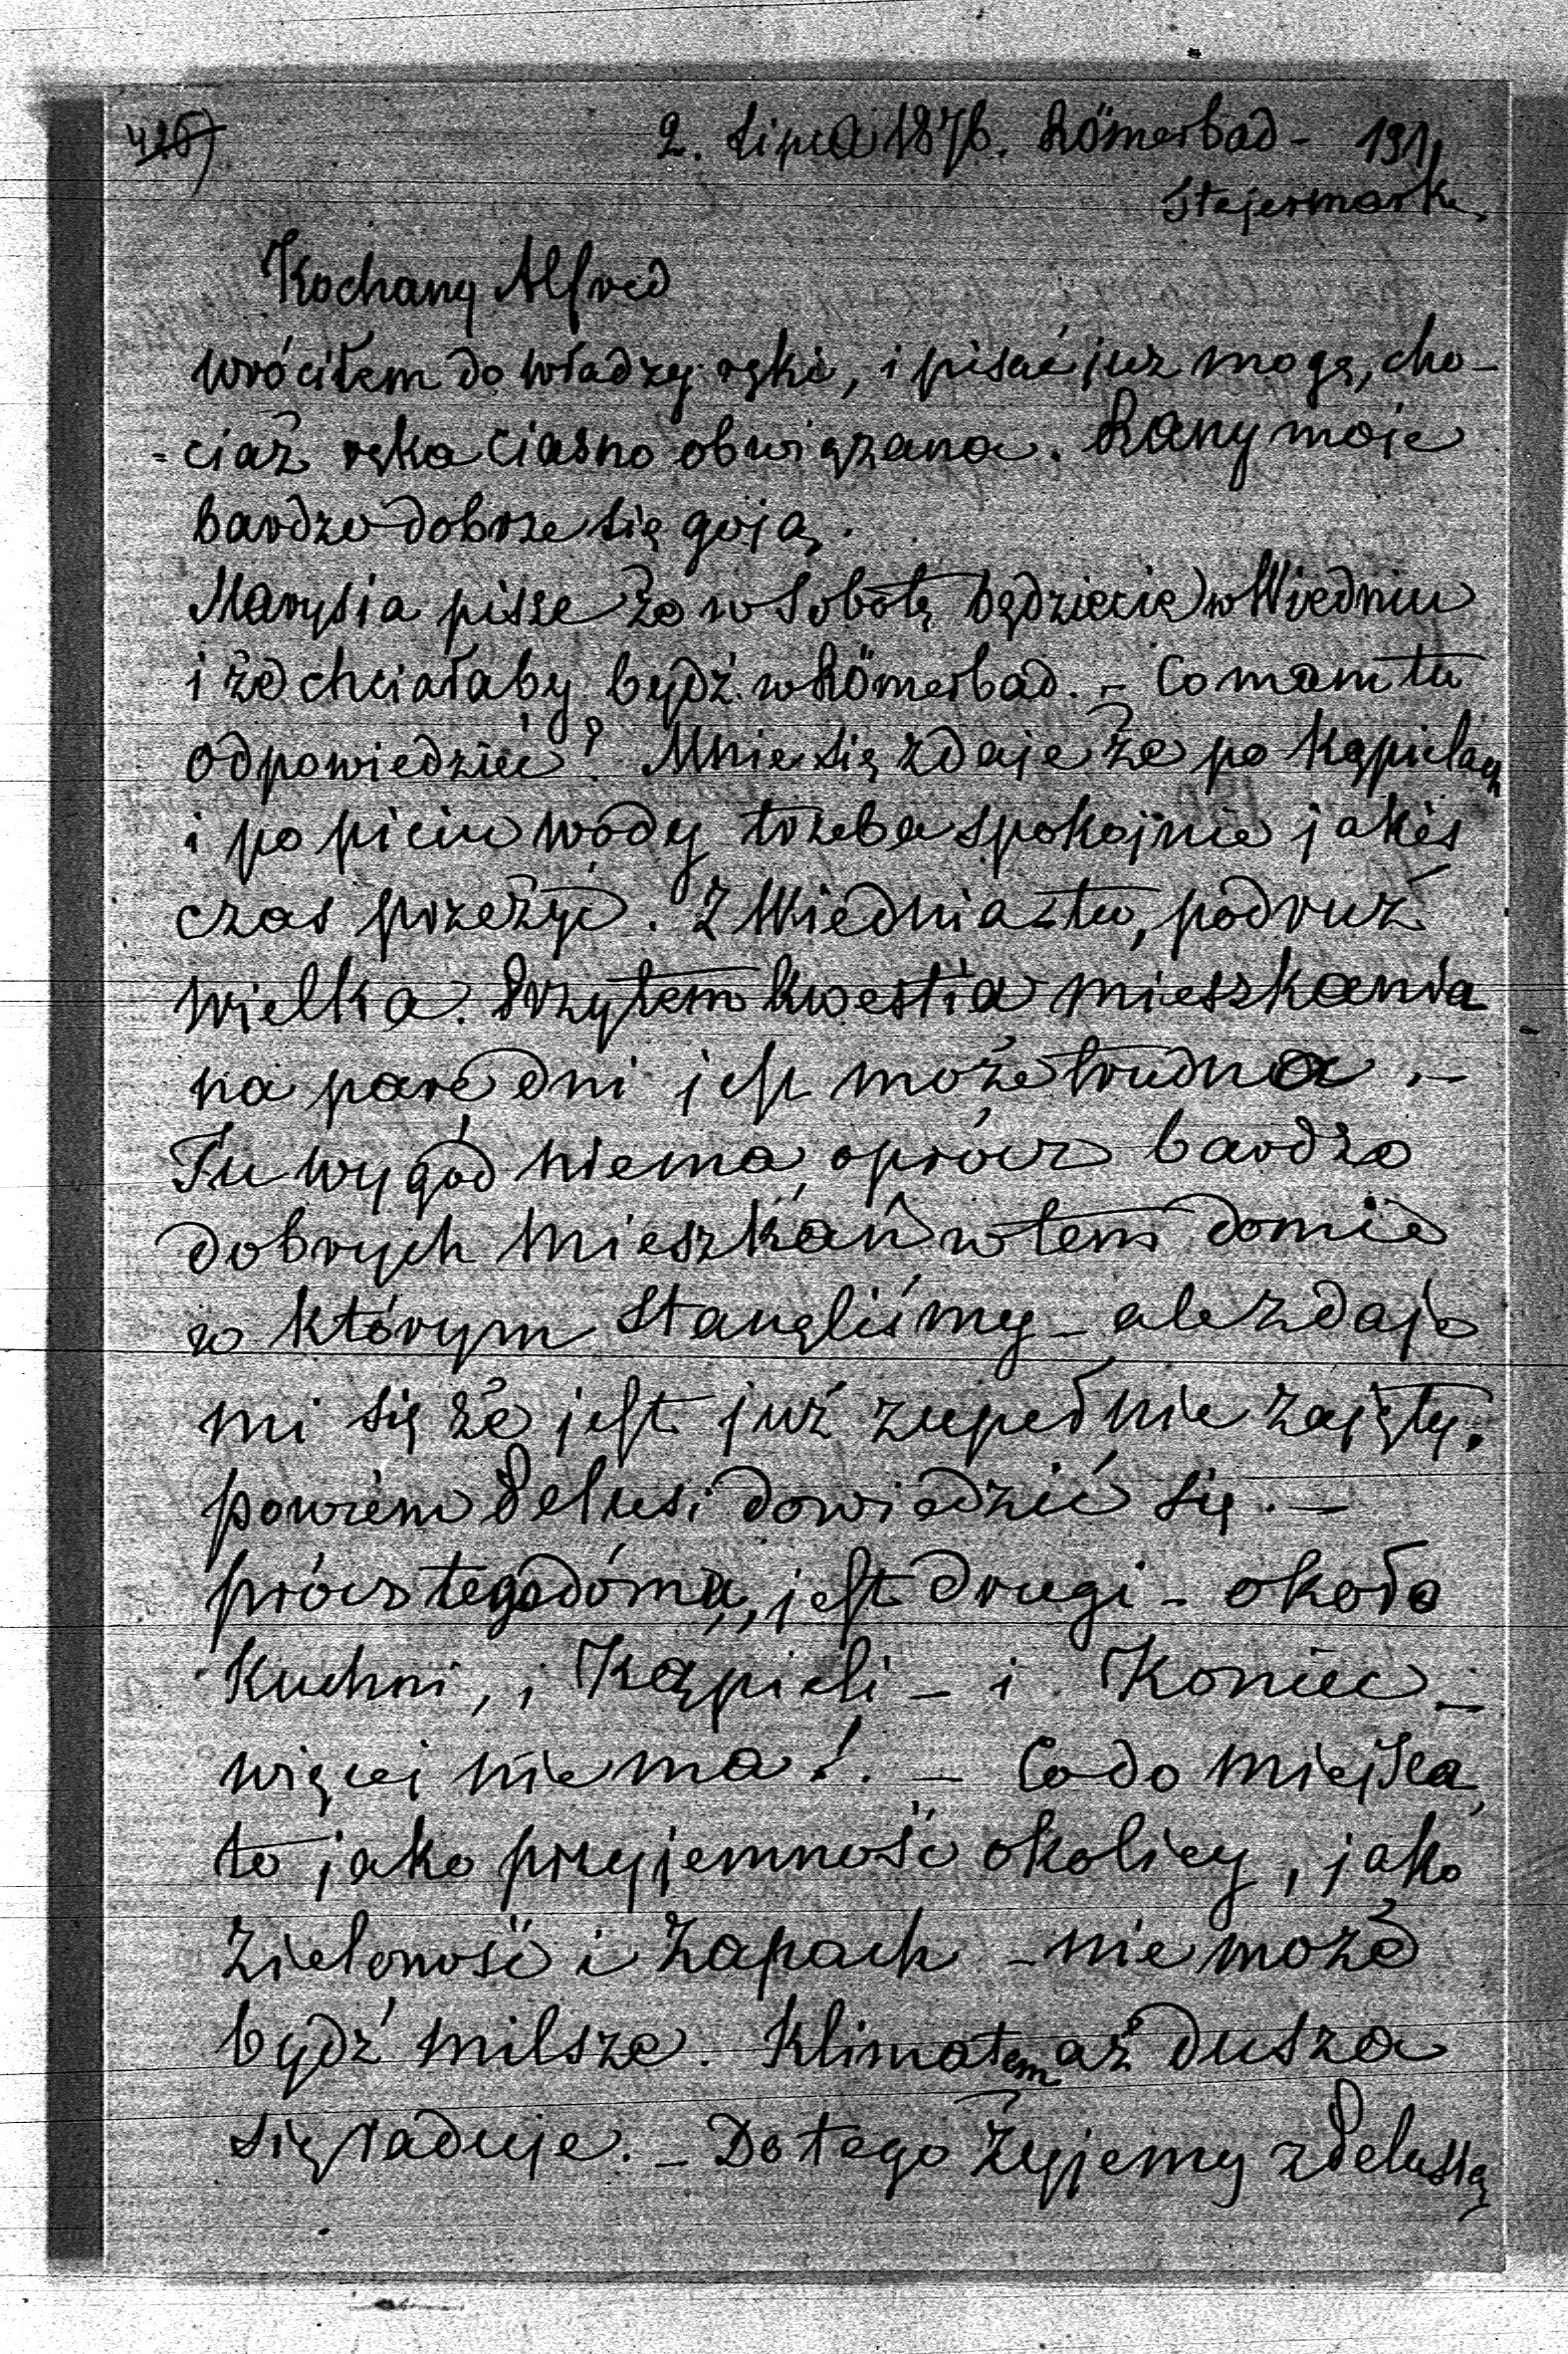 426)
2. Lipca 1876. Römerbad - 191,
Stejermark.
Kochany Alfred
wróciłem do władzy ręki, i pisać już mogę, cho-
=ciaż ręka ciasno obwiązana. Rany moje
bardzo dobrze się goją.
Marysia pisze że w Sobotę będziecie w Wiedniu
i że chciałaby bydź w Römerbad. - Co mam tu
odpowiedzieć? Mnie się zdaje że po kąpielach
i po piciu wody trzeba spokojnie jakiś
czas przeżyć. Z Wiednia tu, podruż
wielka. Przytem kwestia mieszkania
na parę dni jest może trudna. -
Tu wygód niema, oprócz bardzo
dobrych mieszkań w tem domie
w którym stanęliśmy - ale zdaje
mi się że jest już zupełnie zajęty.
powiem Delusi dowiedzieć się. -
prócz tego domu, jest drugi - około
Kuchni, i Kąpieli - i Koniec -
więcej niema!. - Co do miejsca,
to jako przyjemność okolicy, jako
zieloność i zapach - nie może
bydź milsze. Klimatem aż dusza
się raduje. - Do tego żyjemy z Delusią